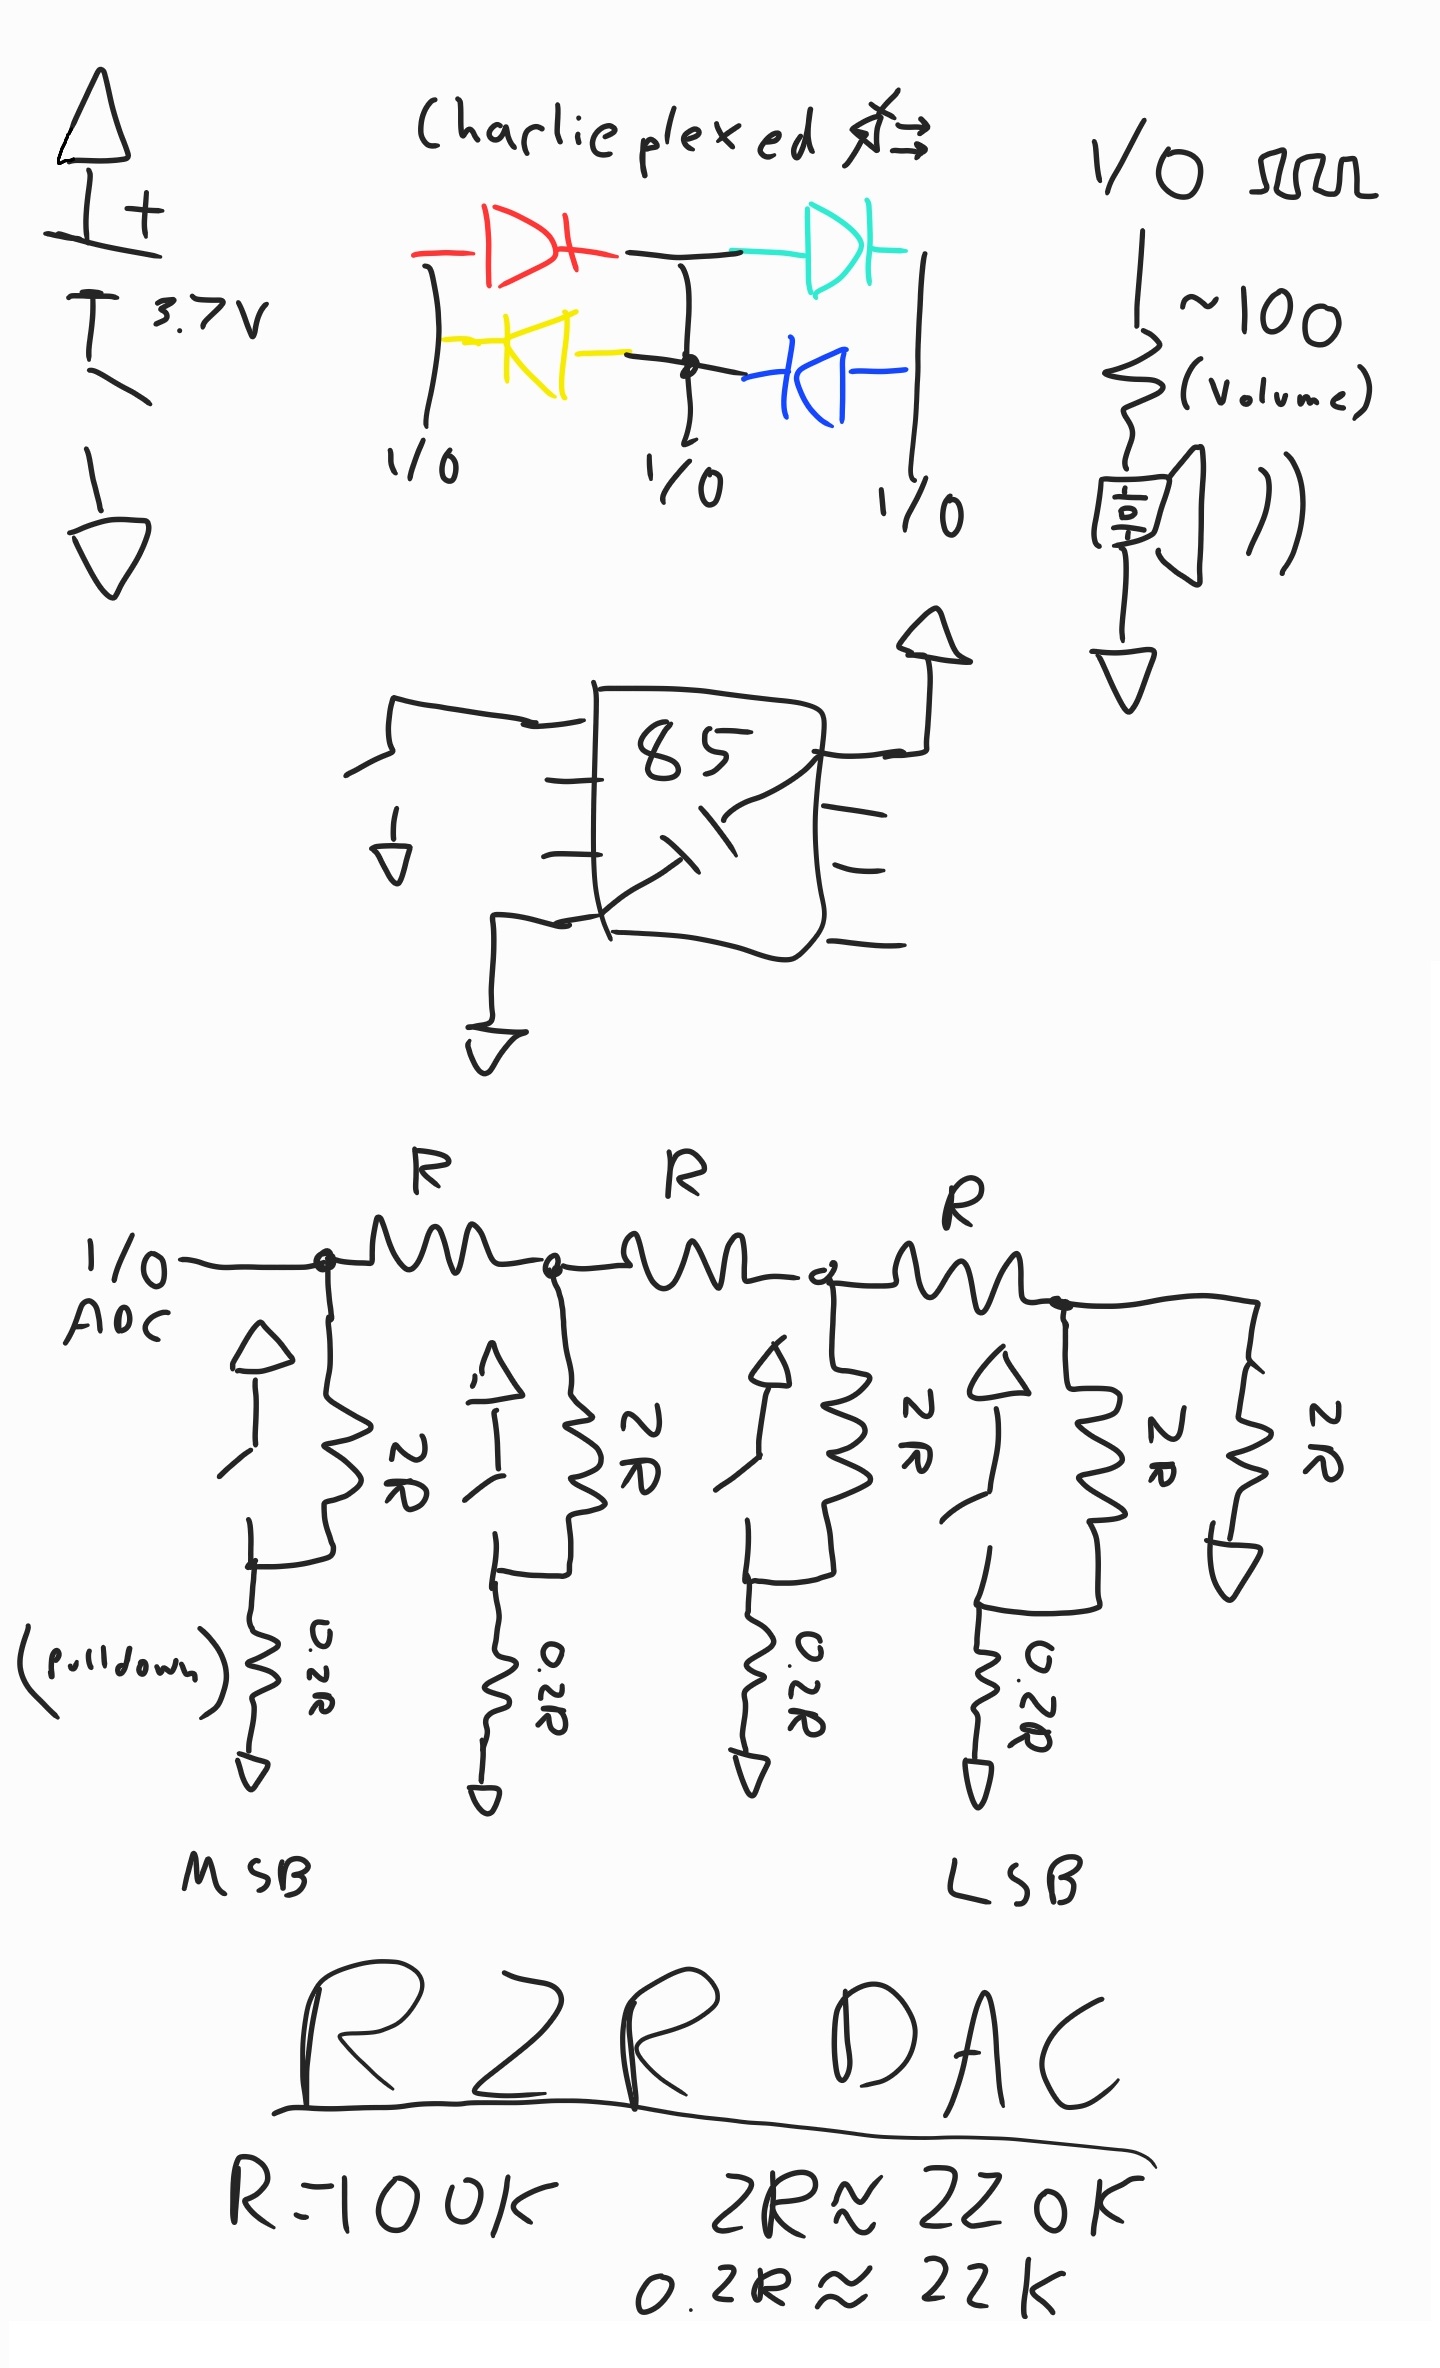 Charlieplexed
I/O
+
3.7V
~100
(Volume)
I/O
I/O
I/O
85
R
R
R
I/O
ADC
2R
2R
2R
2R
2R
(pulldown)
0.2R
0.2R
0.2R
0.2R
MSB
LSB
R2R DAC
R=100K
2R≈220K
0.2R≈22K